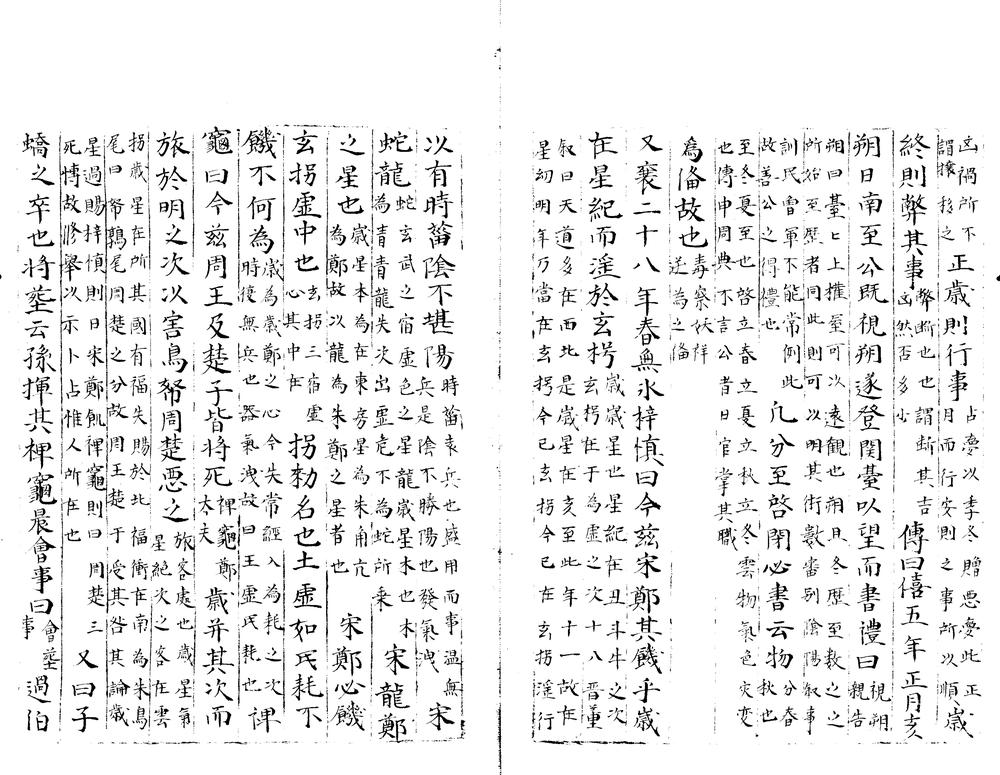 凶禍所不謂攘移之正歳則行事占夢以季冬贈悪夢此正月而行安則之事所以順歳
終則弊其事弊断也謂断其吉凶然否多少傳曰僖五年正月亥
朔日南至公既視朔遂登閞臺以望而書禮曰視朔親告
朔曰臺匕上搆至可以遠観也朔且冬歴至敎之之所始至歴者同此則可以明其街數審别陰陽叙事
訓民曹軍不能常例此故善公之得禮也凡分至啓閉必書云物分春秋也
至冬夏至也啓立春立夏立秋立冬雲物氣色灾变也傳申周典不言公者日官掌其職
為俻故也毒察妖祥逆為之俻
又襄二十八年春無氷梓慎曰今兹宋鄭其饑乎歳
在星紀而淫於玄枵歳歳星也星紀在丑斗牛之次玄枵在于為虚之次十八晋董
叙曰天道多在西北是歳星在亥至此年十一故在星初明年乃當在玄拐今已玄拐今已在玄拐淫行
以有時菑陰不堪陽時菑衰兵也盛用而事温無兵是陰不勝陽也發氣洩宋
蛇龍蛇玄武之宿虚色之星龍歳星木也木為青青龍失次出虚危下為蛇所乗宋龍鄭
之星也歳星本為在東房星為朱角亢為鄭故以龍為朱鄭之星者也宋鄭必饑
玄拐虚中也玄拐三宿虚心其中在拐勑名也土虚如民耗不
饑不何為歳為歳鄭之心今失常經入為耗之次時復無兵也器氣洩故曰王虚民耗也裨
竈曰今兹周王及楚子皆将死裨竈鄭太夫歳弃其次而
旅於明之次以害鳥帑周楚悪之旅客處也歳星氣星絶次之客在雲
拐歳星在所其國有福失賜於北福衝在南為朱鳥尾曰帑鶉尾周楚之分故周王楚于受其咎其論歳
星過賜梓慎則曰宋鄭飢裨竈則曰周楚三死博故修舉以示卜占惟人所在也又曰子
蟜之卒也将塟云孫揮其裨竈晨會事曰會塟事過伯